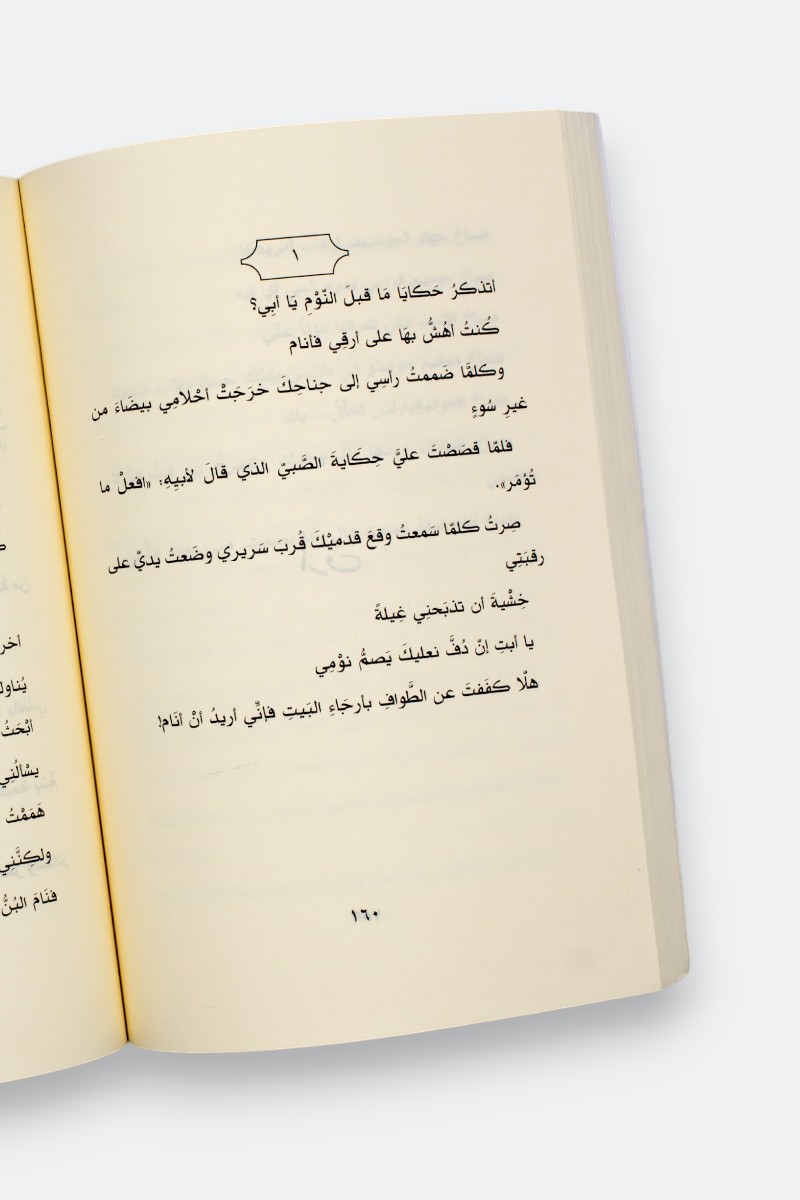 ١
أتذكرُ حَكايَا مَا قبلَ النّوْمِ يَا أبِي؟
كُنتُ أهُشُّ بهَا على أرقِي فأنام
وكلمَّا ضَممتُ رأسِي إلى جناحِكَ خرَجَتْ أحْلامِي بيضَاءَ من
غيرِ سُوءٍ
فلمّا قصَصْتَ عليَّ حِكَايةَ الصَّبيّ الذي قالَ لأبيِهِ: «افعلْ ما
تُؤمَر».
صِرتُ كلمّا سَمعتُ وقعَ قدميْكَ قُربَ سَريري وضَعتُ يديّ على
رقبَتِي
خِشْيةَ أن تذبَحنِي غِيلةً
يا أبتِ إنّ دُفَّ نعليكَ يَصمُّ نوْمِي
هلّا كفَفتَ عن الطَّوافِ بأرجَاءِ البَيتِ فإنِّي أريدُ أنْ أنَام!
١٦٠
أبْحَثُ
يسْألُنِي
هَمَمْتُ
ولكِنَّنِي
فنَامَ البُنُّ